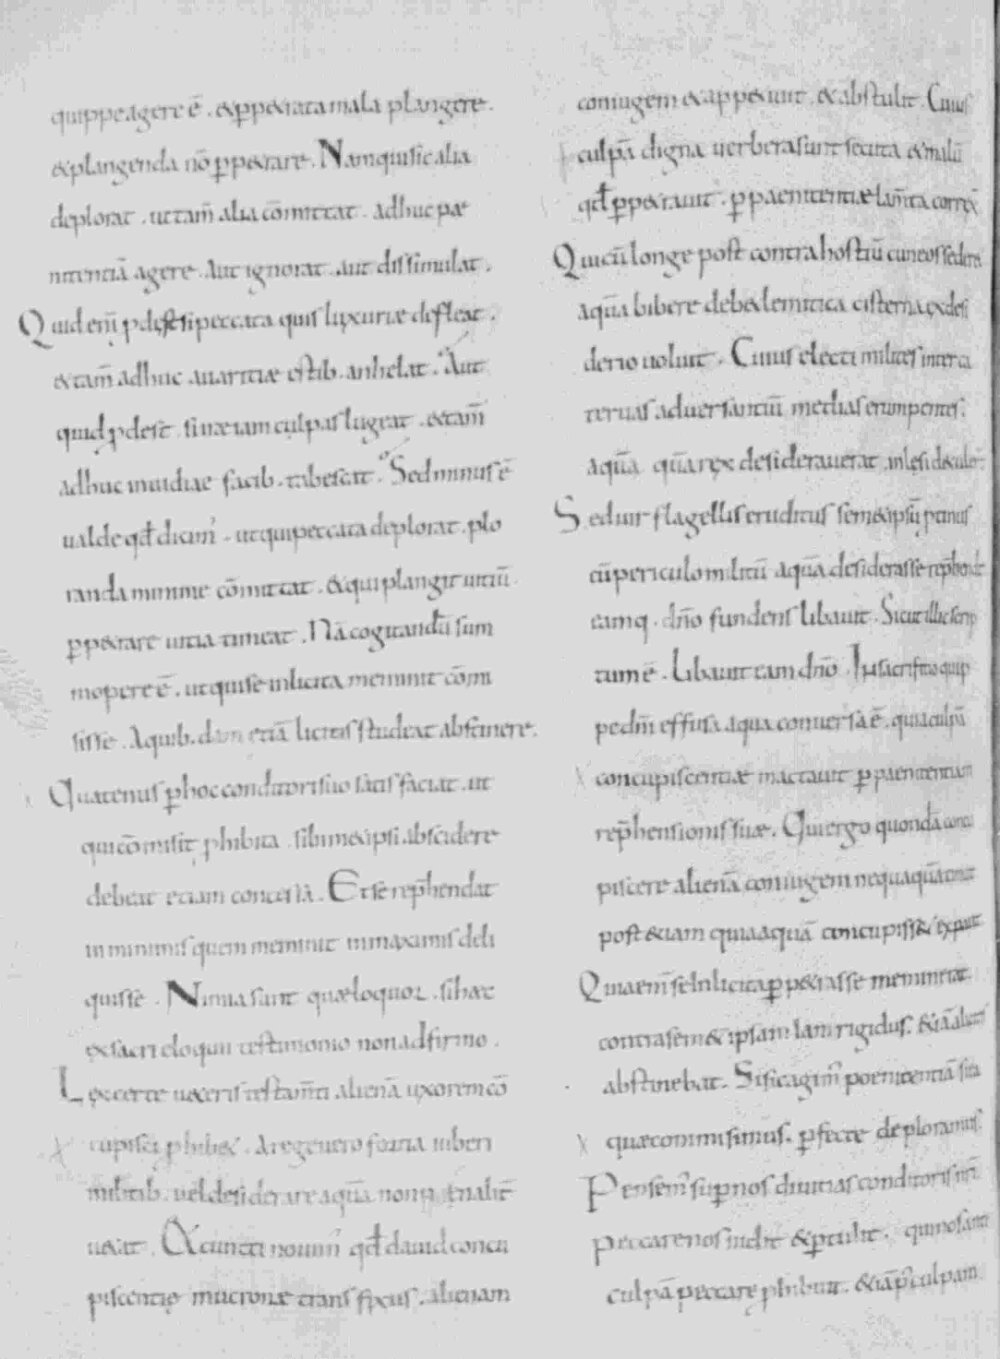 quippe agere ē . & ppetrata mala plangere .
& plangenda nō ppetrare . Nam qui sic alia
deplorat . ut tam̄ alia cōmittat . adhuc pae
nitentiā agere . aut ignorat . aut dissimulat .
Quid enī pdest si peccata quis luxuriae defleat .
& tam̄ adhuc avaritiae estib . anhelat . Aut
quid pdest . si irae iam culpas lugeat . & tam̄
adhuc invidiae facib . tabescat . Sed minus ē
valde qđ dicim̄ . ut qui peccata deplorat . plo
randa minime cōmittat . & qui plangit vitiū
ppetrare vitia timeat . Nā cogitandū sum
mopere ē . ut qui se inlicita meminit cōmi
sisse . A quib . dam etiā licitis studeat abstinere .
Quatenus p hoc conditori suo satis faciat . ut
qui cōmisit phibita . sibimet ipsi abscidere
debeat etiam concessa . Et se rephendat
in minimis quem meminit in maximis deli
quisse . Nimia sunt quae loquor . si haec
ex sacri eloquii testimonio non adfirmo .
Lex certe veteris testam̄ti alienā uxorem cō
cupisci phibet . A rege vero fortia iuberi
militib . vel desiderare aquā non penalit̄
vetat . Et cuncti novim̄ qđ david concu
piscentiae mucrone transfixus . alienam
coniugem & appetivit . & abstulit . Cuius
culpā digna verbera sunt secuta & malū
qđ ppetravit . p paenitentiae lam̄ta correx̄
Qui cū longe post contra hostiū cuneos sederet
aquā bibere de bethlemitica cisterna ex desi
derio voluit . Cuius electi milites inter ca
tervas adversantiū medias erumpentes .
aquā quā rex desideraverat . inlesi detuler̄
Sed vir flagellis eruditus sem& ipsū ptinus
cū periculo militū aquā desiderasse rephendit
eamq . dn̄o fundens libavit . Sicut illic scrip
tum ē . Libavit eam dn̄o . In sacrificio quip
pe dn̄i effusa aqua conversa ē . quia culpā
concupiscentiae mactavit p paenitentiam
rephensionis suae . Qui ergo quondā concu
piscere alienā coniugem nequaquā timuit
post etiam quia aquā concupiss& expavit
Quia enī se inlicita ppetrasse meminerat .
contra sem& ipsam iam rigidus . etiā a licitis
abstinebat . Sic sic agim̄ poenitentiā si ea
quae commisimus . pfecte deploramus .
Pensem̄ supnos divitias conditoris nr̄i
peccare nos vidit & ptulit . qui nos ante
culpā peccare phibuit . & iā p culpam